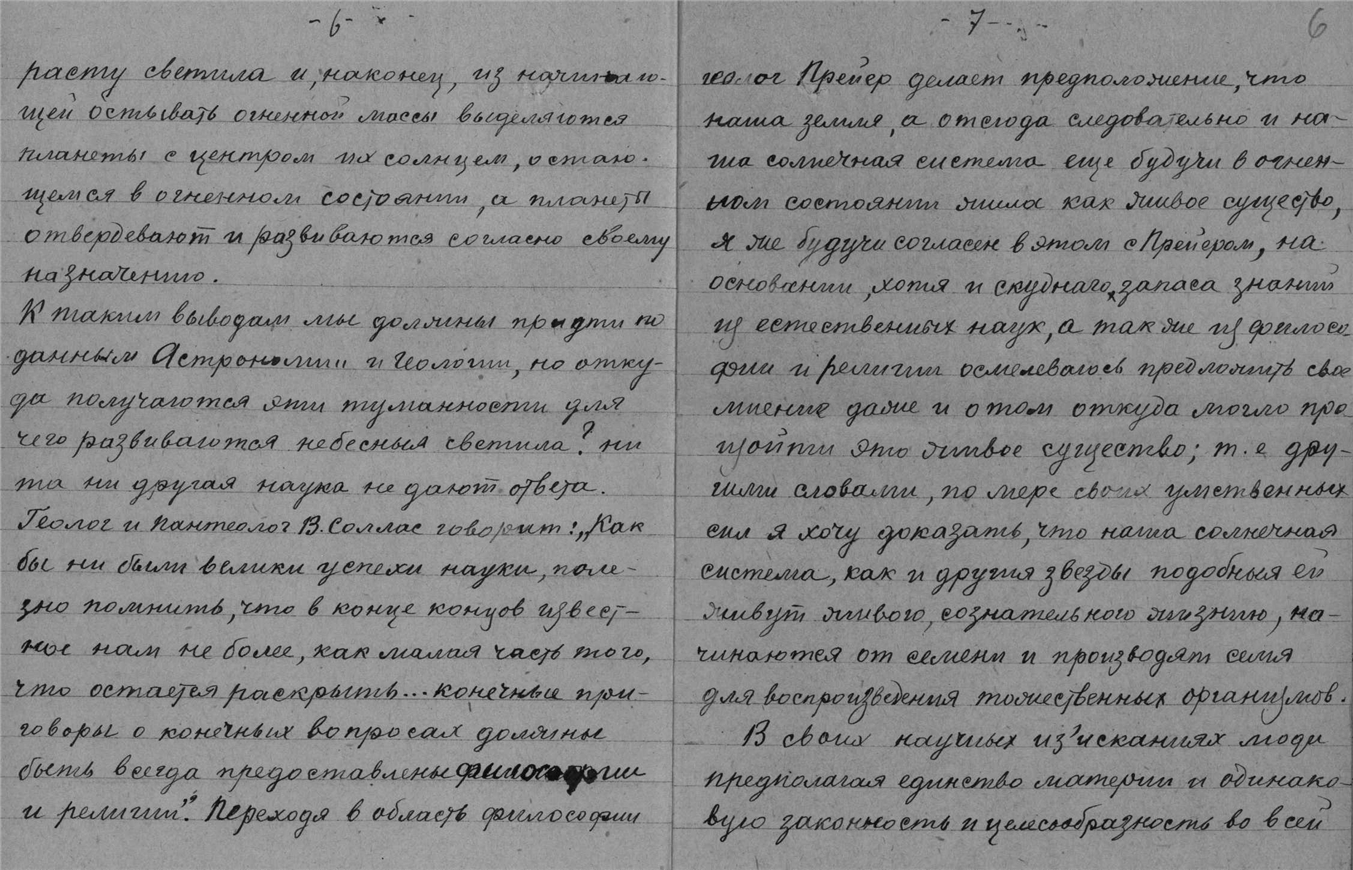 - 6 -
расту светила и, наконец, из начинаю-
щей остывать огненной массы выделяются
планеты с центром их солнцем, остаю-
щемся в огненном состоянии, а планеты
отвердевают и развиваются согласно своему
назначению.
К таким выводам мы должны придти по
данным Астрономии и Геологии, но отку-
да получаются эти туманности для
чего развиваются небесныя светила? ни
та ни другая наука не дают ответа.
Геолог и Пантеолог В. Соллас говорит: „Как
бы ни были велики успехи науки, поле-
зно помнить, что в конце концов извест-
ное нам не более, как малая часть того,
что остается раскрыть... конечные при-
говоры о конечных вопросах должны
быть всегда предоставлены философии
и религии". Переходя в область философии
- 7 -
6
геолог Прейер делает предположение, что
наша земля, а отсюда следовательно и на-
ша солнечная система еще будучи в огнен-
ном состоянии жила как живое существо,
я же будучи согласен в этом с Прейером, на
основании, хотя и скуднаго, запаса знаний
из естественных наук, а также из филосо-
фии и религии осмелеваюсь предложить свое
мнение даже и о том откуда могло про
изойти это живое существо; т. е дру-
гими словами, по мере своих умственных
сил я хочу доказать, что наша солнечная
система, как и другия звезды подобныя ей
живут живого, сознательного жизнию, на-
чинаются от семени и производят семя
для воспроизведения тожественных организмов.
В своих научных из'исканиях люди
предполагая единство материи и одинако-
вую законность и целесообразность во всей